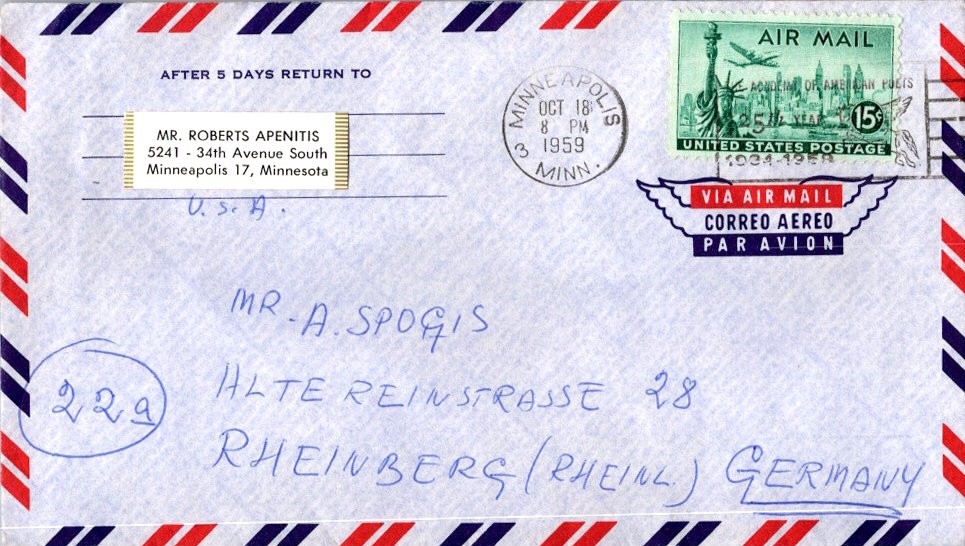 AFTER 5 DAYS RETURN TO
MR. ROBERTS APENITIS
5241 - 34th Avenue South
Minneapolis 17, Minnesota
U.S.A.
MINNEAPOLIS
OCT 18
8 PM
1959
3 MINN.
AIR MAIL
ACADEMY OF AMERICAN POETS
25TH YEAR
15¢
UNITED STATES POSTAGE
1934-1959
VIA AIR MAIL
CORREO AEREO
PAR AVION
MR. A. SPOGIS
ALTE REINSTRASSE 28
22a
RHEINBERG (RHEINL.) GERMANY